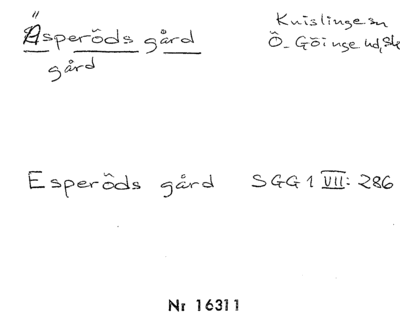 Äsperöds gård Knislinge sn
gård Ö. Göinge hd, Sk
Esperöds gård SGG 1 VII: 286
Nr 16311